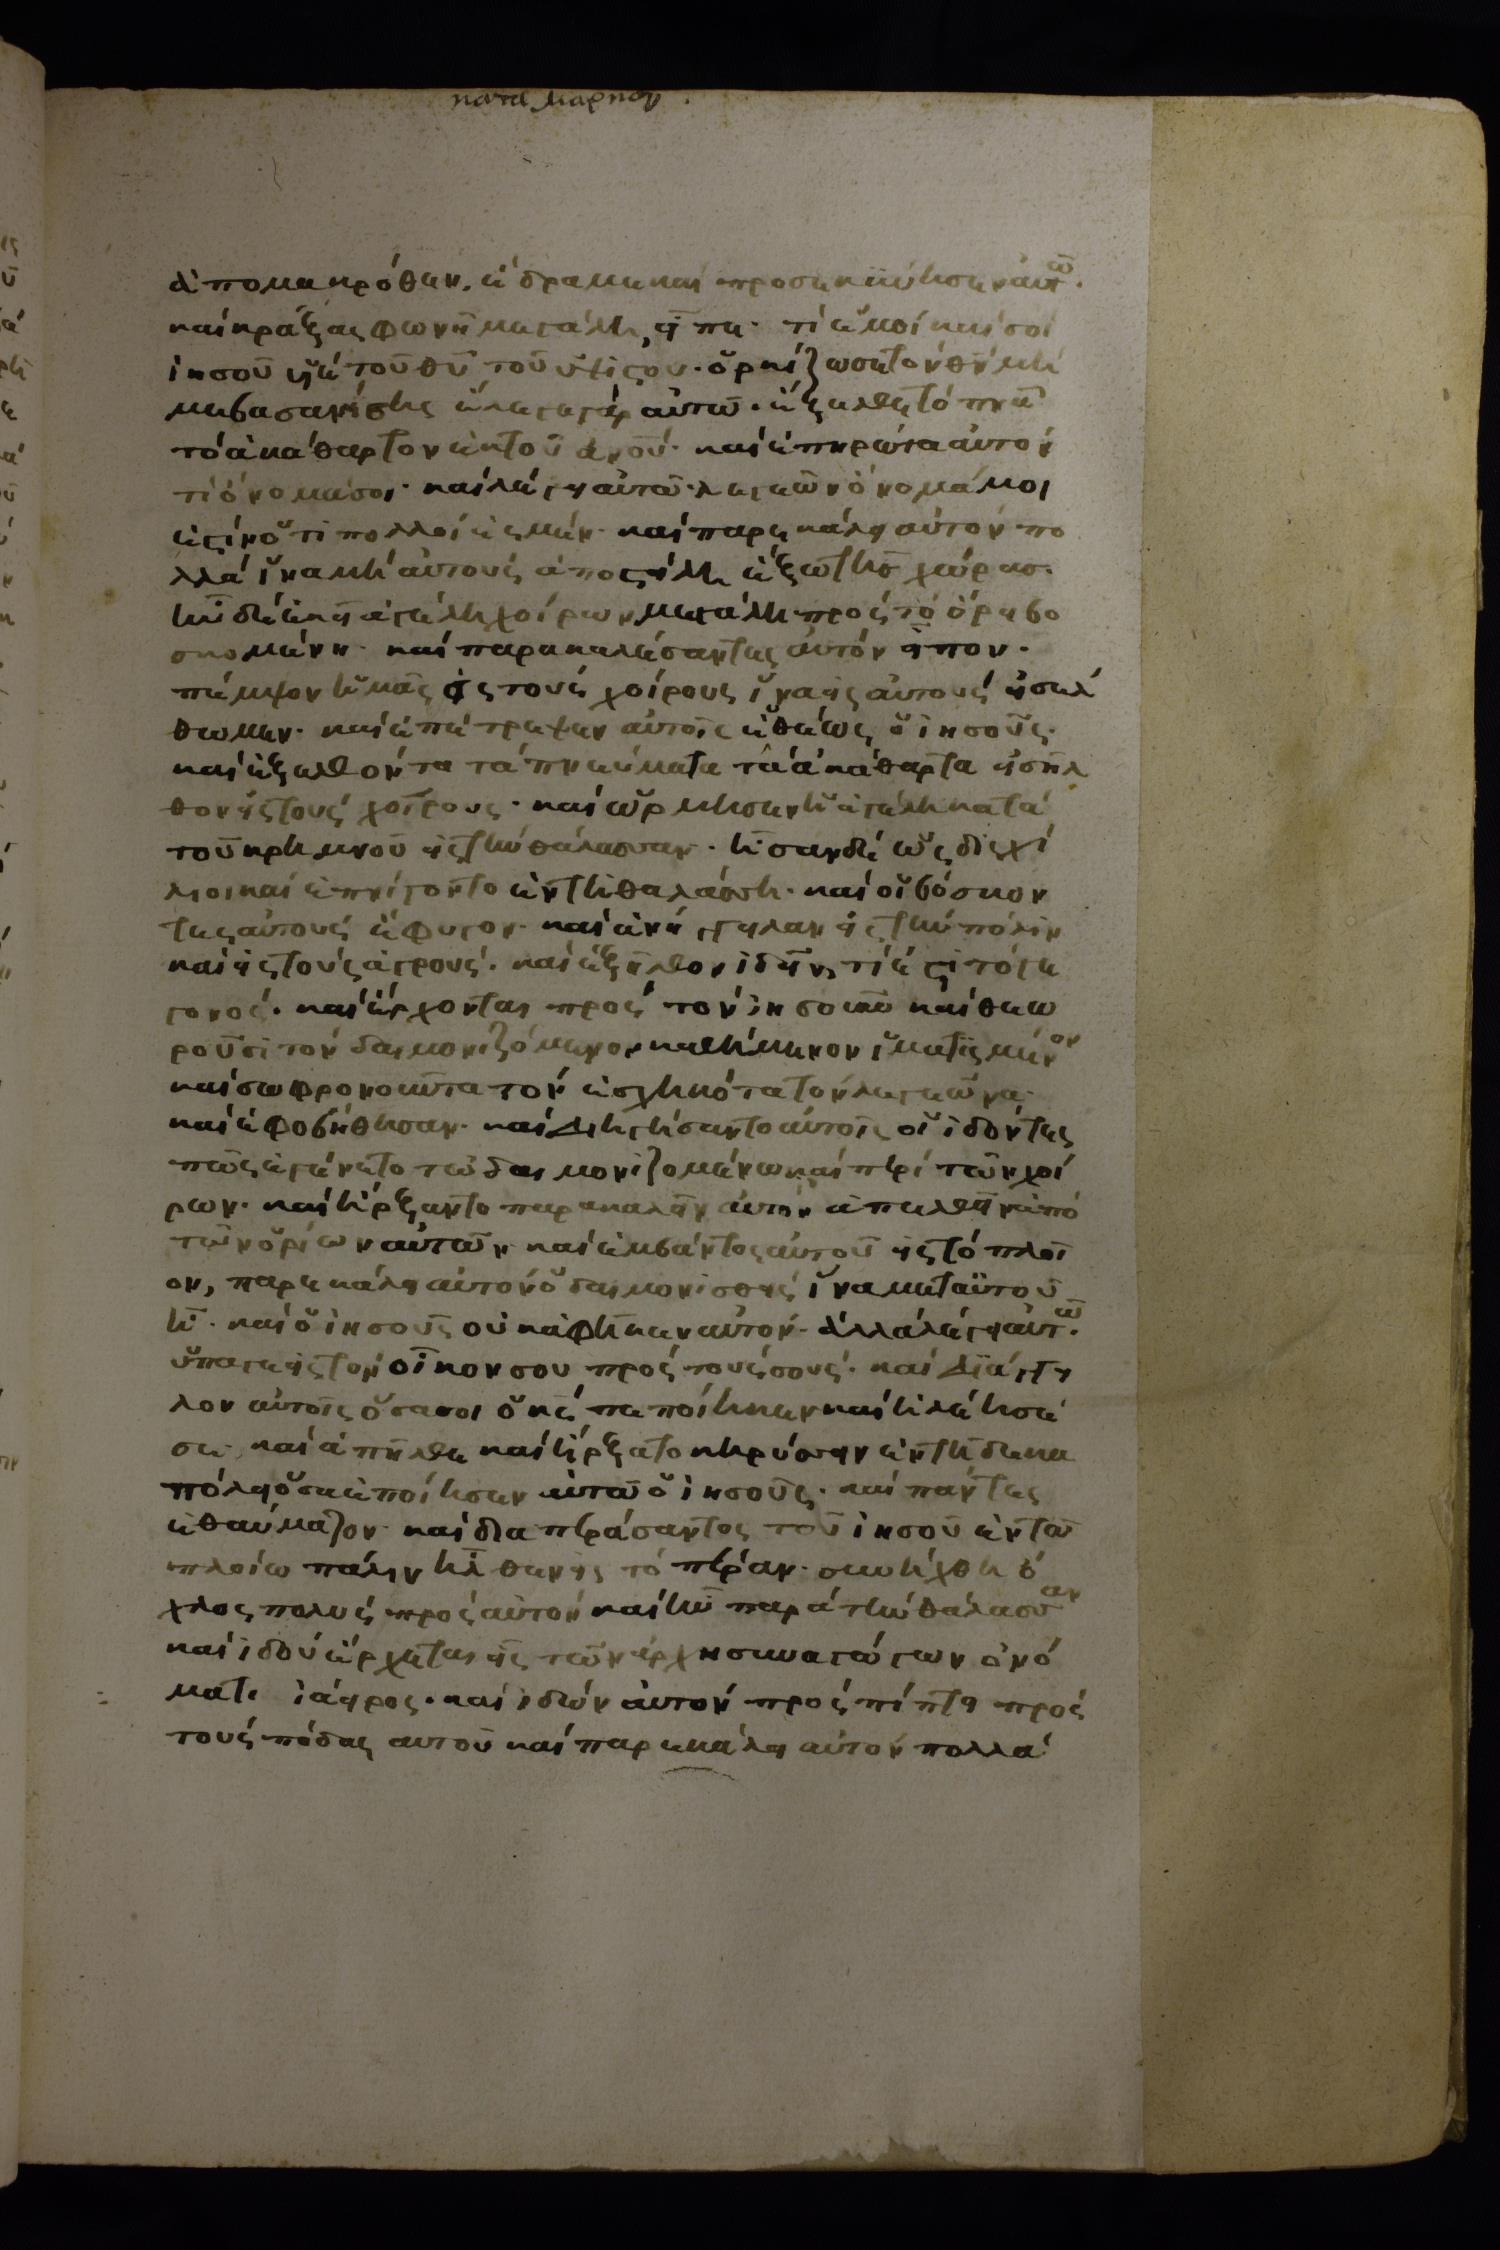 κατα μαρκον.
ἀπὸ μακρόθεν, ἔδραμε καὶ προσεκϋνησεν αὐτῶ.
καὶ κράξας φωνῆ μεγάλη, εἶπε· τί ἐμοὶ καὶ σοὶ
ἰησοῦ υἱὲ τοῦ θῦ τοῦ ὑψίστου· ὁρκίζω σε τὸν θν μή
με βασανίσης ἔλεγε γὰρ αὐτῶ· ἔξελθε τὸ πνα
τὸ ἀκάθαρτον ἐκ τοῦ ἀνου· καὶ ἐπηρώτα αὐτόν
τί ὄνομά σοι· καὶ λέγει αὐτῶ· λεγεῶν ὄνομά μοι
ἐστίν ὅτι πολλοί ἐσμέν· καὶ παρεκάλει αὐτὸν πο
λλά ἵνα μὴ αὐτοὺς ἀποστείλη ἔξω τῆς χώρας·
ἦν δὲ ἐκεῖ ἀγέλη χοίρων μεγάλη πρὸς τὸ ὄρει βο
σκομένη· καὶ παρακαλέσαντες αὐτόν εἶπον·
πέμψον ἡμᾶς εἰς τοὺς χοίρους ἵνα εἰς αὐτοὺς εἰσέλ
θωμεν· καὶ ἐπέτρεψεν αὐτοῖς εὐθέως ὁ ἰησοῦς·
καὶ ἐξελθόντα τὰ πνεύματα τὰ ἀκάθαρτα εἰσῆλ
θον εἰς τοὺς χοίρους· καὶ ὥρμησεν ἡ ἀγέλη κατά
τοῦ κρημνοῦ εἰς τὴν θάλασσαν· ἦσαν δὲ ὡς δισχί
λιοι καὶ ἐπνίγοντο ἐν τῆ θαλάσση· καὶ οἱ βόσκον
τες αὐτοὺς ἔφυγον· καὶ ἀνήγγειλαν εἰς τὴν πόλιν
καὶ εἰς τοὺς ἀγρούς· καὶ ἐξῆλθον ἰδεῖν, τί ἐστὶ τὸ γε
γονός· καὶ ἔρχονται πρὸς τὸν ἰησοῦν καὶ θεω
ροῦσι τὸν δαιμονιζόμενον καθήμενον ἱματισμένον
καὶ σωφρονοῦντα τὸν ἐσχηκότα τὸν λεγεῶνα·
καὶ ἐφοβήθησαν· καὶ διηγήσαντο αὐτοῖς οἱ ἰδόντες
πῶς ἐγένετο τῶ δαιμονιζομένω καὶ περὶ τῶν χοί
ρων· καὶ ἤρξαντο παρακαλεῖν αὐτὸν ἀπελθεῖν ἀπὸ
τῶν ὁρίων αὐτῶν· καὶ ἐμβάντος αὐτοῦ εἰς τὸ πλοῖ
ον, παρεκάλει αὐτὸν ὁ δαιμονισθεὶς ἵνα μετ αὐτοῦ
ἦ· καὶ ὁ ἰησοῦς οὐκ ἀφῆκεν αὐτόν· ἀλλὰ λέγει αὐτῶ·
ὕπαγε εἰς τὸν οἶκον σου πρὸς τοὺς σούς· καὶ διάγγει
λον αὐτοῖς ὅσα σοι ὁ κς πεποίηκεν καὶ ἠλέησέ
σε· καὶ ἀπῆλθε καὶ ἤρξατο κηρύσσειν ἐν τῆ δεκα
πόλει ὅσα ἐποίησεν αὐτῶ ὁ ἰησοῦς· καὶ πάντες
ἐθαύμαζον· καὶ διαπεράσαντος τοῦ ἰησοῦ ἐν τῶ
πλοίω πάλιν ἦλθεν εἰς τὸ πέραν· συνήχθη ὄ
χλος πολὺς πρὸς αὐτόν καὶ ἦν παρὰ τὴν θάλασσαν
καὶ ἰδοὺ ἔρχεται εἷς τῶν ἀρχησυναγώγων ὀνό
ματι ἰάειρος· καὶ ἰδὼν αὐτὸν προσπίπτει πρὸς
τοὺς πόδας αυτοῦ καὶ παρεκάλει αὐτὸν πολλά